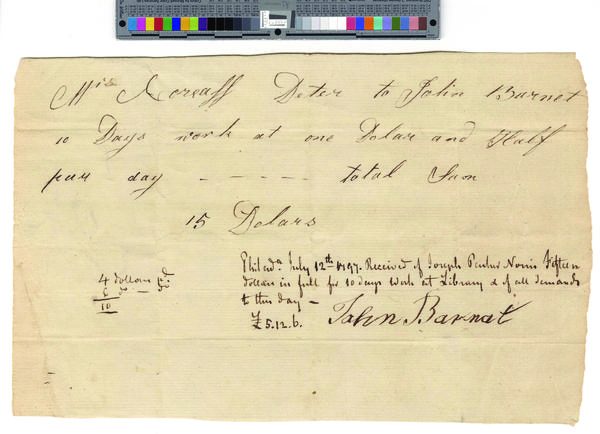 Mrs Norraff Deter to John Barnet
10 Days work at one Dolar and Half
pur day - - - - - total Sum
15 Dolars
Philada July 12th 1797. Received of Joseph Parker Norris Fifteen
Dollars in full for 10 days Work at Library & of all demands
to this day —
£5.12.6. John Barnat
4 dollars pd
6 do —
10